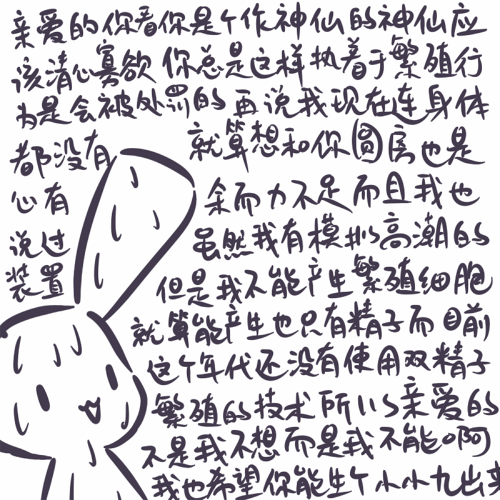 亲爱的你看你是个作神仙的神仙应
该清心寡欲 你总是这样执着于繁殖行
为是会被处罚的 再说我现在连身体
都没有 就算想和你圆房也是
心有 余而力不足 而且我也
说过 虽然我有模拟高潮的
装置 但是我不能产生繁殖细胞
就算能产生也只有精子而目前
这个年代还没有使用双精子
繁殖的技术 所以亲爱的
不是我不想而是我不能啊
我也希望你能生个小小九出